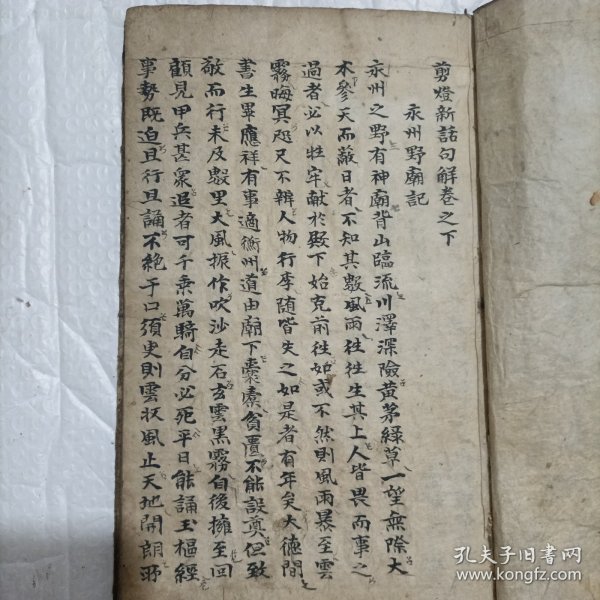 剪燈新話句解卷之下
永州野廟記
永州之野有神廟背山臨流川澤深險黃茅綠草一望無際大
木參天而蔽日者不知其數風雨往往生其上人皆畏而事之
過者必以牲牢献於殿下始克前徃如或不然則風雨暴至雲
霧晦冥咫尺不辨人物行李随皆失之如是者有年矣大德間
書生畢應祥有事適衡州道由廟下囊橐貧匱不能設奠但致
敬而行未及數里大風振作吹沙走石玄雲黑霧自後擁至回
顧見甲兵甚衆追者可千乗萬騎自分必死平日能誦玉樞經
事勢既迫且行且誦不絕于口須臾則雲收風止天地開朗所
孔夫子旧书网
www.kongfz.com